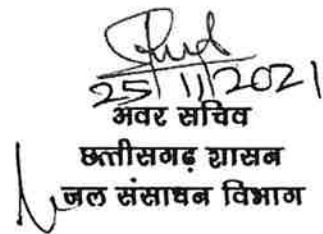 25/11/2021
अवर सचिव
छत्तीसगढ़ शासन
जल संसाधन विभाग